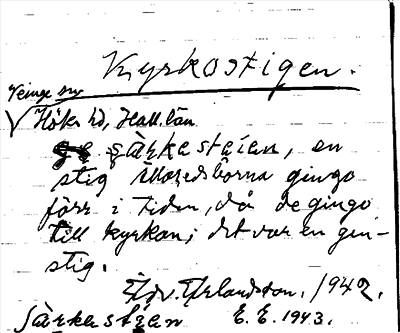 Kyrkostigen.
Veinge sn
Höks hd, Hall. län
särkasteien, en
stig Maredsborna gingo
förr i tiden, då de gingo
till kyrkan; det var en gen-
stig.
Edv. Erlandson. 1942.
särkasteien E.E. 1943.